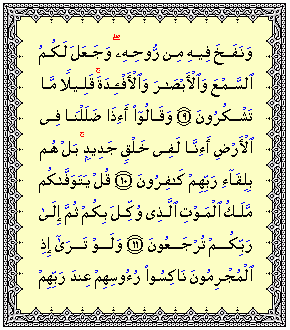 وَنَفَخَ فِيهِ مِن رُّوحِهِۦۖ وَجَعَلَ لَكُمُ
ٱلسَّمْعَ وَٱلْأَبْصَٰرَ وَٱلْأَفْـِٔدَةَۚ قَلِيلًا مَّا
تَشْكُرُونَ ٩ وَقَالُوٓا۟ أَءِذَا ضَلَلْنَا فِى
ٱلْأَرْضِ أَءِنَّا لَفِى خَلْقٍ جَدِيدٍۭۚ بَلْ هُم
بِلِقَآءِ رَبِّهِمْ كَٰفِرُونَ ١٠ قُلْ يَتَوَفَّىٰكُم
مَّلَكُ ٱلْمَوْتِ ٱلَّذِى وُكِّلَ بِكُمْ ثُمَّ إِلَىٰ
رَبِّكُمْ تُرْجَعُونَ ١١ وَلَوْ تَرَىٰٓ إِذِ
ٱلْمُجْرِمُونَ نَاكِسُوا۟ رُءُوسِهِمْ عِندَ رَبِّهِمْ